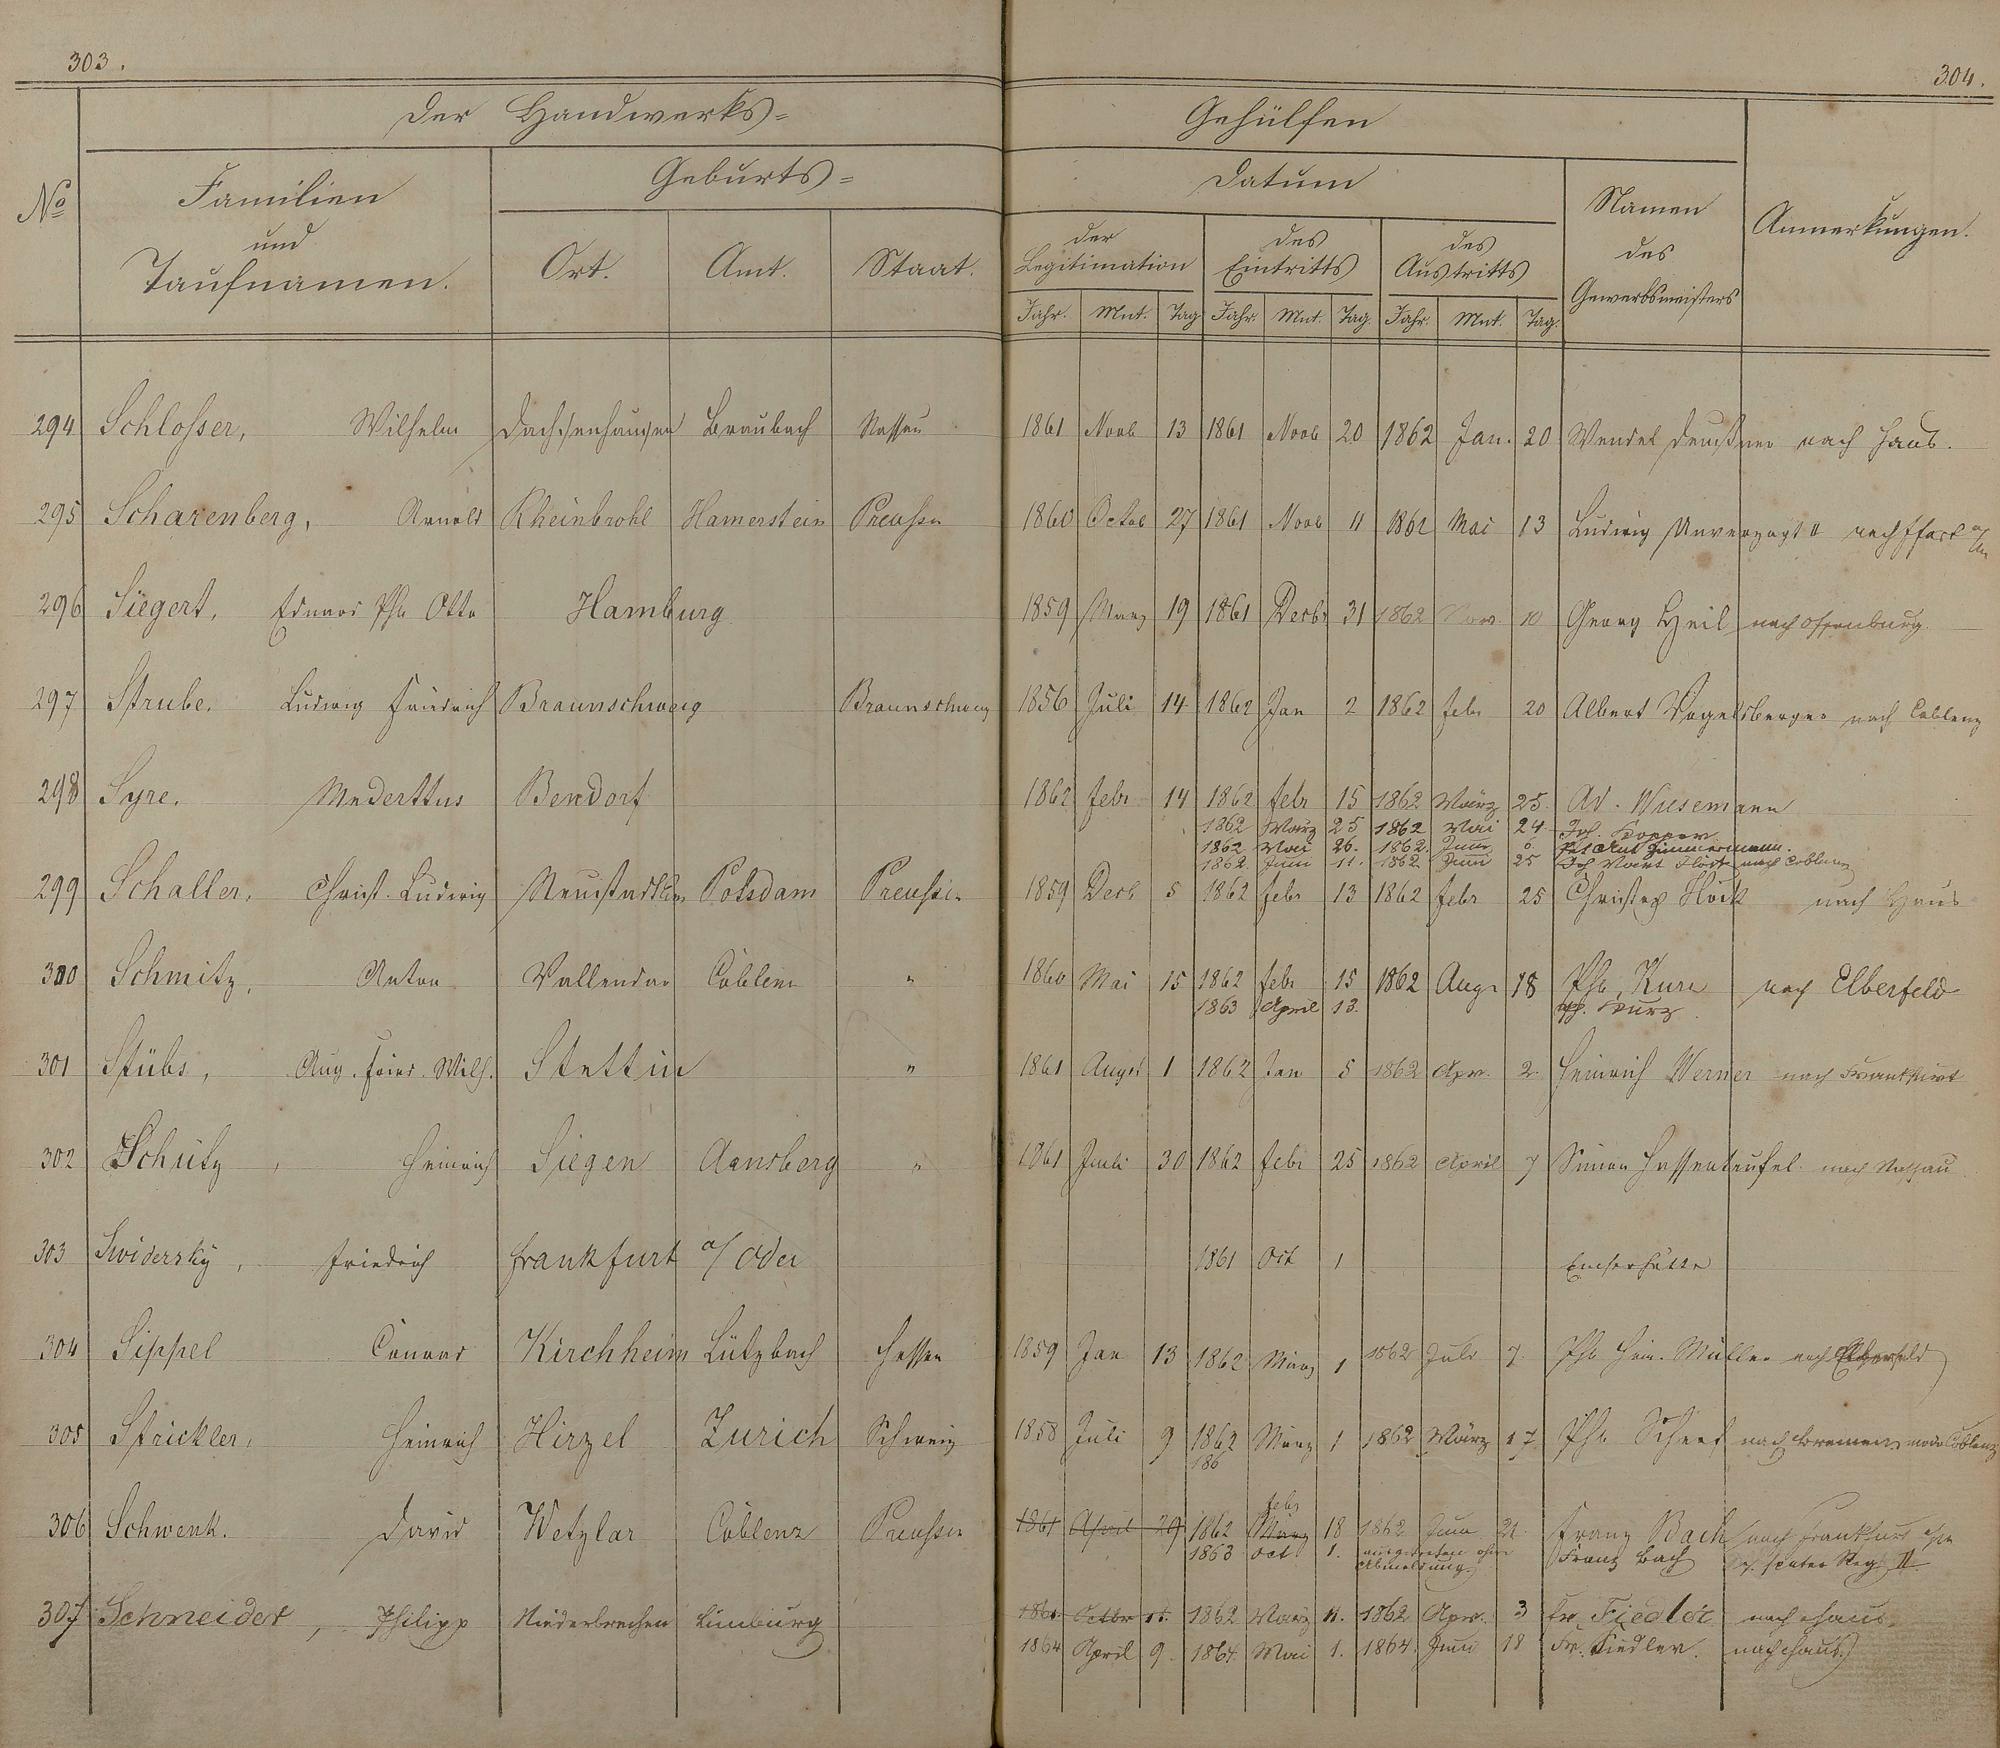 303.
304.
Der Handwerks=
Gehülfen
No
Familien
und
Taufnamen.
Geburts=
Ort.
Amt.
Staat.
Datum
der
Legitimation
des
Eintritts
des
Austritts
Jahr. Mnt. Tag Jahr. Mnt. Tag. Jahr. Mnt. Tag.
Namen
des
Gewerbsmeisters
Anmerkungen.
294 Schlosser, Wilhelm Dachsenhausen Braubach Nassau 1861 Novb 13 1861 Novb 20 1862 Jan. 20 Wendel nach Haus.
295 Scharenberg, Arnold Rheinbrohl Hamerstein Preußen 1860 Octob 27 1861 Novb 11 1862 Mai 13 Ludwig Unverzagt II nach
296 Siegert, Eduard Phl Otto Hamburg 1859 März 19 1861 Decbr 31 1862 10 Georg Heil nach Offenburg
297 Strube, Ludwig Friedrich Braunschweig Braunschweig 1856 Juli 14 1862 Jan 2 1862 Febr 20 Albert Vogelsberger nach Coblenz
298 Syre, Bendorf 1862 Febr 14 1862 Febr 15 1862 März 25. Ad. Wiesemann
1862 März 25 1862 Mai 24 Joh.
1862 Mai 26. 1862. Juni 6. Zimmermann.
1862. Juni 11. 1862 Juni 25 Joh nach Coblenz
299 Schaller, Christ. Ludwig Potsdam Preußen 1859 Decb 5 1862 Febr 13 1862 Febr 25 Höck nach Haus
300 Schmitz, Anton Vallendar Coblenz " 1860 Mai 15 1862 Febr 15 1862 Augs 18 Phl. Kurz nach Elberfeld
1863 April 13. Ph. Kurz
301 Stübs, Aug. Fried. Wilh. Stettin " 1861 Augst 1 1862 Jan 5 1862 Apr. 2. Heinrich Werner nach Frankfurt
302 Schütz, Heinrich Siegen Arnsberg " 1861 Juli 30 1862 Febr 25 1862 April 7 Simon Hassenteufel nach Nassau
303 Swidersky, Friedrich Frankfurt a/Oder 1861 Oct 1 Emserhütte
304 Sippel Conrad Kirchheim Hessen 1859 Jan 13 1862 März 1 1862 Juli 7. Phl Hein. Müller nach Elberfeld
305 Strickler, Heinrich Hirzel Zurich Schweiz 1858 Juli 9 1862 März 1 1862 März 17. Phl Scheef nach Bremen Coblenz
186
306 Schwenk. David Wetzlar Coblenz Preußen 1861 April 29 1862 März Febr 18 1862 Juni 21. Franz Bach nach Frankfurt a/M
1863 Oct 1. ausgetreten ohne Abmeldung. Franz Bach später Reg II
307 Schneider, Philipp Niederbrechen Limburg Octbr 1862 März 11. 1862 Apr. 3 Fr Fiedler nach Haus.
1864 April 9. 1864. Mai 1. 1864. Juni 18 Fr. Fiedler. nach Haus.